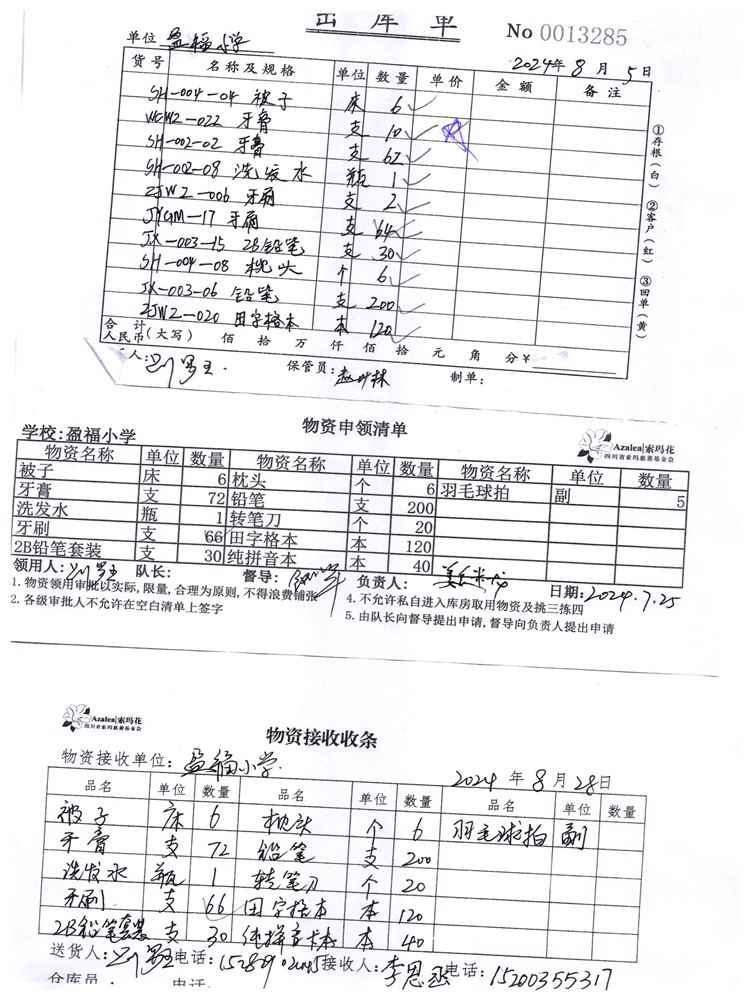 出库单
No 0013285
单位 盈福小学
2024年8月5日
货号 名称及规格 单位 数量 单价 金额 备注
SH-004-04 被子 床 6
WCWZ-022 牙膏 支 10
SH-002-02 牙膏 支 62
SH-002-08 洗发水 瓶 1
ZJWZ-006 牙刷 支 2
JYGM-17 牙刷 支 64
JX-003-15 2B铅笔 支 30
SH-004-08 枕头 个 6
JX-003-06 铅笔 支 200
ZJWZ-020 田字格本 本 120
合计
人民币(大写) 佰 拾 万 仟 佰 拾 元 角 分 ¥
人: 保管员: 制单:
①存根(白) ②客户(红) ③回单(黄)
物资申领清单
Azalea|索玛花
四川省索玛慈善基金会
学校:盈福小学
物资名称 单位 数量 物资名称 单位 数量 物资名称 单位 数量
被子 床 6 枕头 个 6 羽毛球拍 副 5
牙膏 支 72 铅笔 支 200
洗发水 瓶 1 转笔刀 个 20
牙刷 支 66 田字格本 本 120
2B铅笔套装 支 30 纯拼音本 本 40
领用人: 队长: 督导: 负责人: 日期:2024.7.25
1.物资领用审批以实际,限量,合理为原则,不得浪费铺张
2.各级审批人不允许在空白清单上签字
4.不允许私自进入库房取用物资及挑三拣四
5.由队长向督导提出申请,督导向负责人提出申请
Azalea|索玛花
四川省索玛慈善基金会
物资接收收条
物资接收单位: 盈福小学
2024年8月28日
品名 单位 数量 品名 单位 数量 品名 单位 数量
被子 床 6 枕头 个 6 羽毛球拍 副
牙膏 支 72 铅笔 支 200
洗发水 瓶 1 转笔刀 个 20
牙刷 支 66 田字格本 本 120
2B铅笔套装 支 30 纯拼音本 本 40
送货人: 电话: 接收人:李思丞 电话:15200355317
仓库员: 电话: